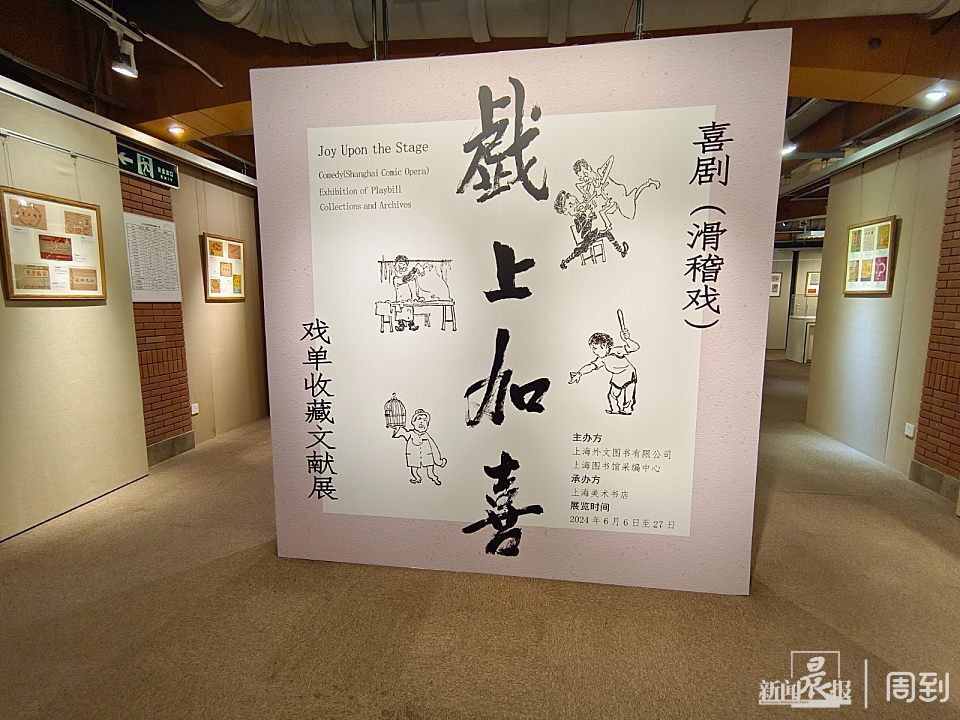 Joy Upon the Stage
Comedy(Shanghai Comic Opera)
Exhibition of Playbill
Collections and Archives
戲上加喜
喜剧(滑稽戏)
戏单收藏文献展
主办方
上海外文图书有限公司
上海图书馆采编中心
承办方
上海美术书店
展览时间
2024年6月6日至27日
新闻晨报
周到